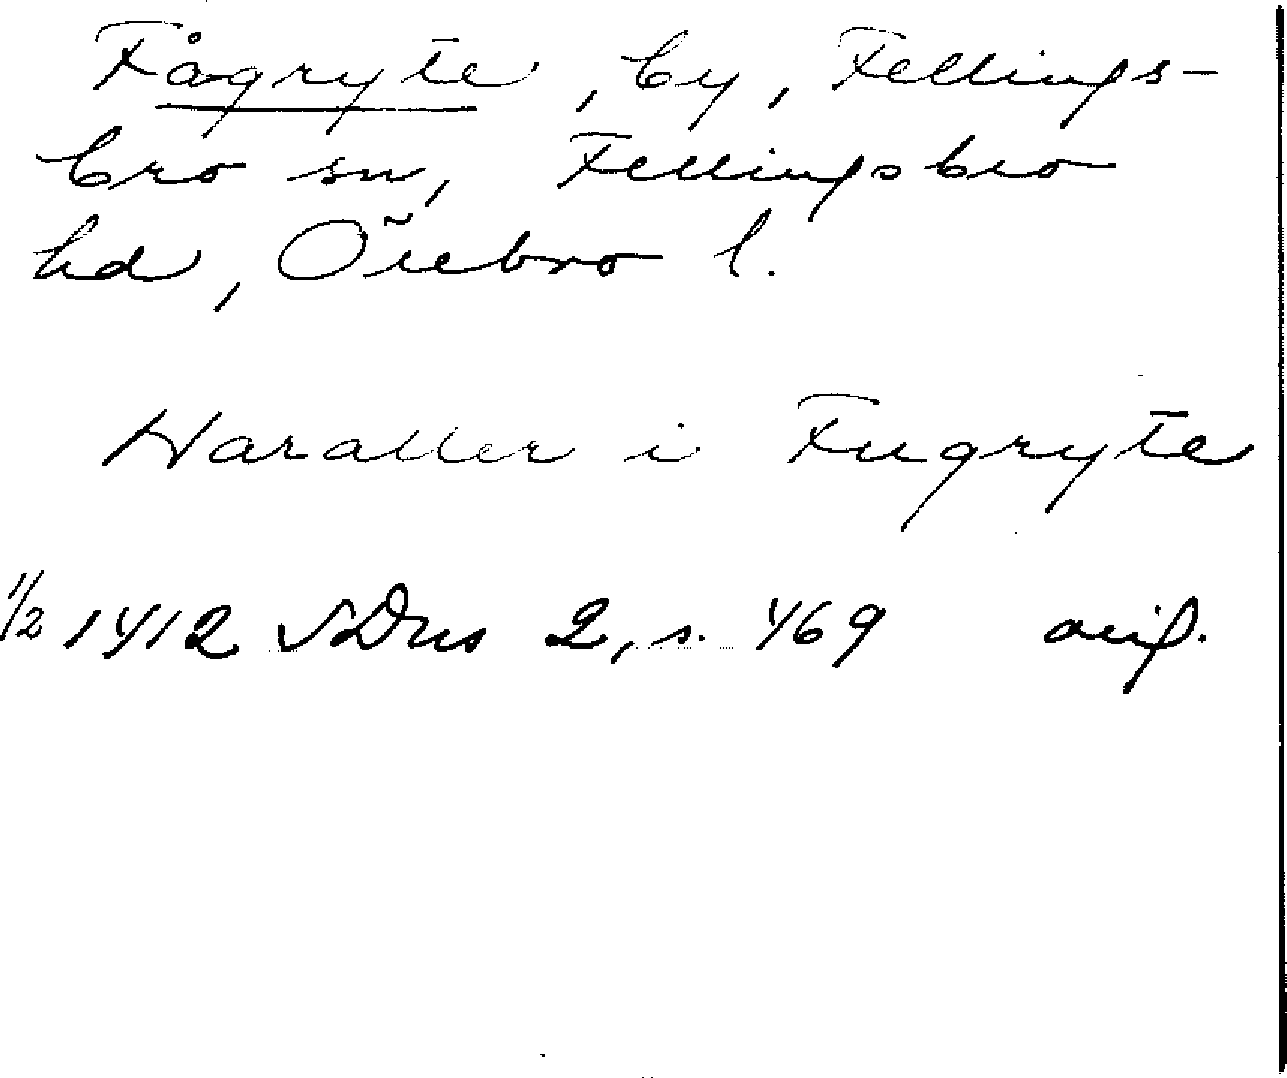 Fågryte, by, Fellings-
bro sn, Fellingsbro
hd, Örebro l.
Haraller i Fugryte
1/2 1412 SDns 2, s. 469 orig.